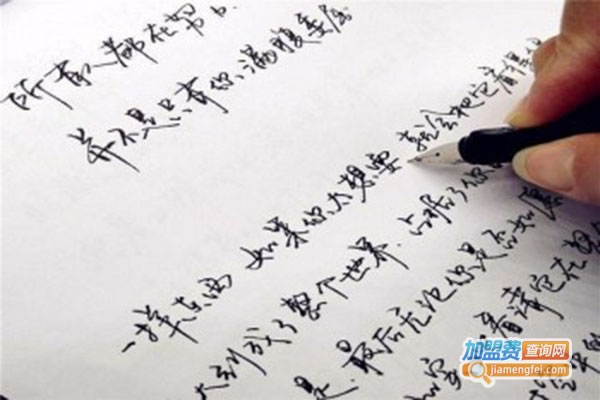 所有人都在努力
并不是只有你满腹委屈
一样东西 如果你太想要 就会把它看得很
大到成了整个世界、占据了你的
是,最后无论你是否如愿
看清它在
加盟费查询网
jiamengfei.com